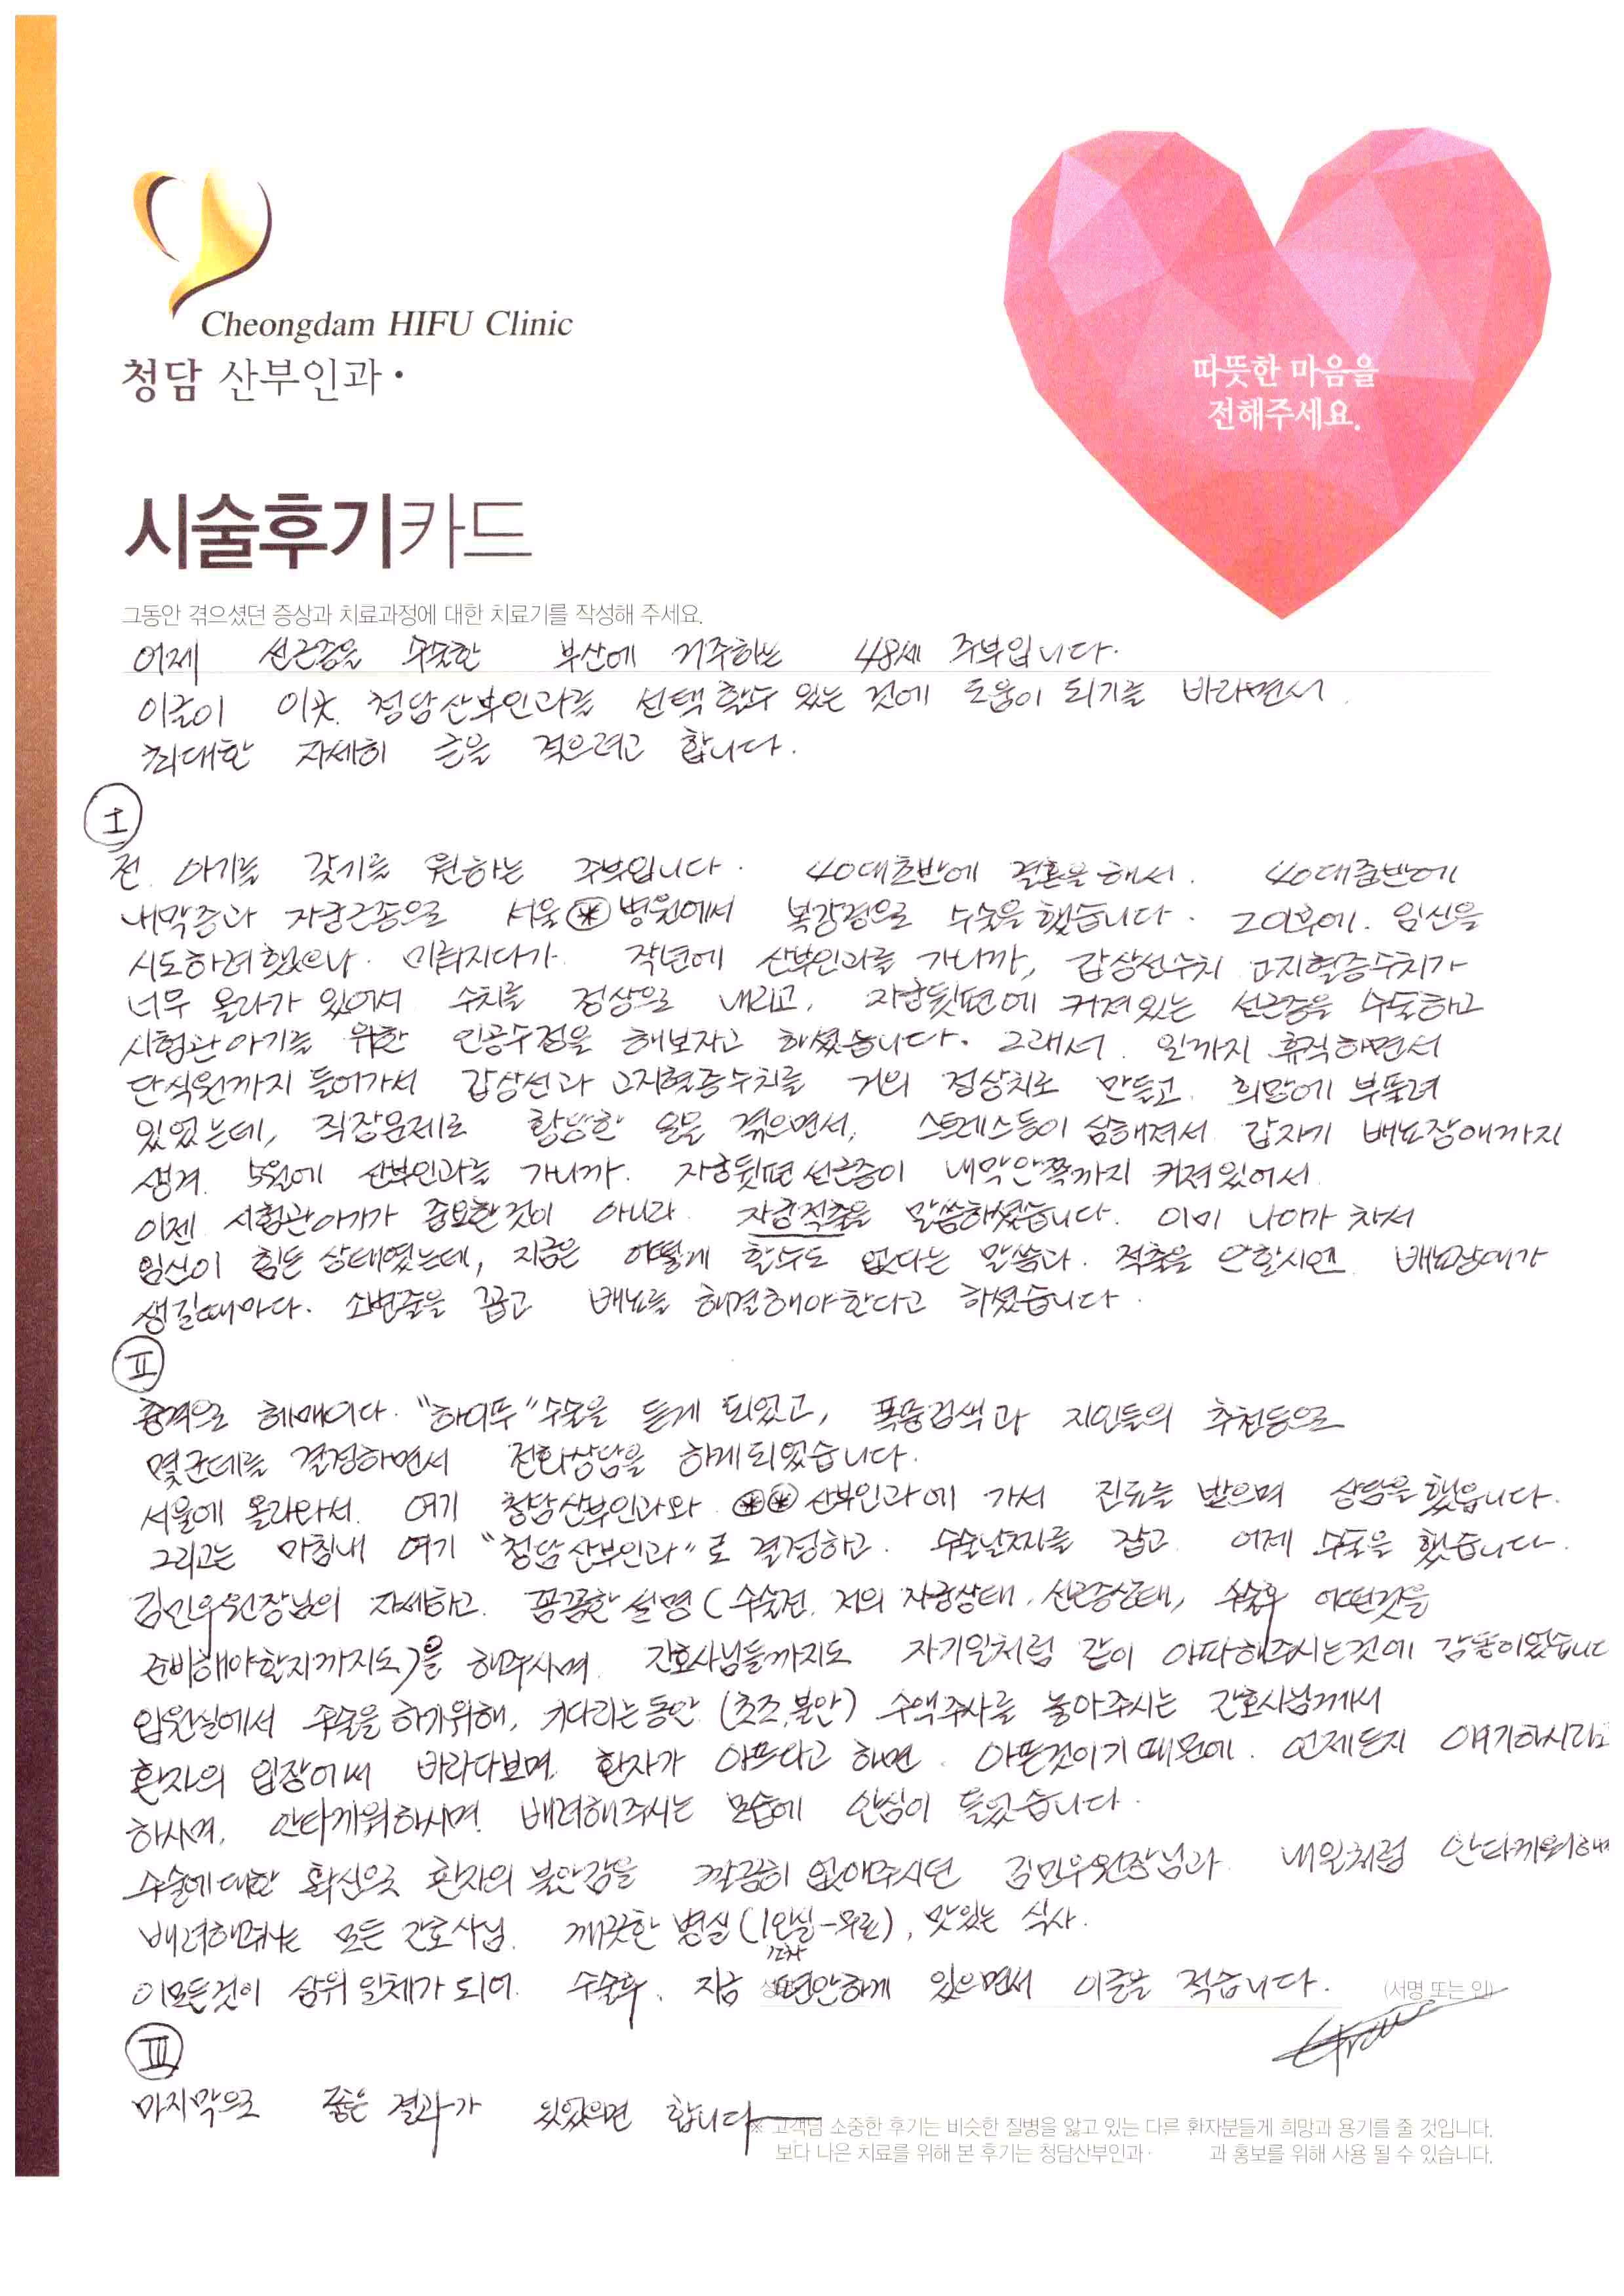 Cheongdam HIFU Clinic
청담 산부인과·
따뜻한 마음을
전해주세요.
시술후기카드
그동안 겪으셨던 증상과 치료과정에 대한 치료기를 작성해 주세요.
어제 선근증을 수술한 부산에 거주하는 48세 주부입니다.
이글이 이곳 청담산부인과를 선택할수 있는 것에 도움이 되기를 바라면서
최대한 자세히 글을 적으려고 합니다.
Ⅰ
전 아기를 갖기를 원하는 주부입니다. 40대초반에 결혼을 해서. 40대중반에
내막증과 자궁근종으로 서울 ※병원에서 복강경으로 수술을 했습니다. 그이후에. 임신을
시도하려했으나. 미뤄지다가 작년에 산부인과를 가니까, 갑상선수치 고지혈증수치가
너무 올라가 있어서 수치를 정상으로 내리고, 자궁뒷편에 커져있는 선근증을 수술하고
시험관아기를 위한 인공수정을 해보자고 하셨습니다. 그래서. 일까지 휴직하면서
단식원까지 들어가서 갑상선과 고지혈증수치를 거의 정상치로 만들고. 희망에 부풀려
있었는데, 직장문제로 황당한 일을 겪으면서, 스트레스등이 심해져서 갑자기 배뇨장애까지
생겨. 5월에 산부인과를 가니까. 자궁뒷편 선근증이 내막안쪽까지 커져있어서
이젠 시험관아기가 중요한것이 아니라 자궁적출을 말씀하셨습니다. 이미 나이가 차서
임신이 힘든 상태였는데, 지금은 어떻게 할수도 없다는 말씀과. 적출을 안할시엔 배뇨장애가
생길때마다. 소변줄을 꼽고 배뇨를 해결해야한다고 하셨습니다.
Ⅱ
충격으로 헤매이다. "하이푸"수술을 듣게 되었고, 폭풍검색과 지인들의 추천등으로
몇군데를 결정하면서 전화상담을 하게되었습니다.
서울에 올라와서. 여기 청담산부인과와 ※※산부인과에 가서 진료를 받으며 상담을 했습니다.
그리고는 마침내 여기 "청담산부인과"로 결정하고. 수술날짜를 잡고 어제 수술을 했습니다.
김민우원장님의 자세하고. 꼼꼼한 설명(수술전. 저의 자궁상태, 선근증상태, 수술후 어떤것을
준비해야할지까지도)을 해주시며. 간호사님들까지도 자기일처럼 같이 아파해주시는것에 감동이었습니다
입원실에서 수술을 하기위해, 기다리는동안 (초조, 불안) 수액주사를 놓아주시는 간호사님께서
환자의 입장에서 바라다보며, 환자가 아프다고 하면. 아픈것이기 때문에. 언제든지 얘기하시라고
하시며, 안타까워하시며 배려해주시는 모습에 안심이 들었습니다.
수술에대한 확신으로 환자의 불안감을 깔끔히 없애주시던 김민우원장님과 내일처럼 안타까워해
배려해주시는 모든 간호사님. 깨끗한 병실(1인실-무료), 맛있는 식사.
이모든것이 삼위일체가 되어. 수술후. 지금 편안하게 있으면서 이글을 적습니다. (서명 또는 인)
Ⅲ
마지막으로 좋은 결과가 있었으면 합니다
※ 고객님 소중한 후기는 비슷한 질병을 앓고 있는 다른 환자분들게 희망과 용기를 줄 것입니다.
보다 나은 치료를 위해 본 후기는 청담산부인과· 과 홍보를 위해 사용 될 수 있습니다.